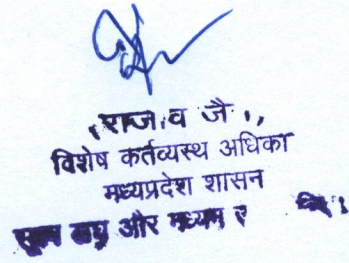 राजीव जैन,
विशेष कर्तव्यस्थ अधिका
मध्यप्रदेश शासन
सूक्ष्म लघु और मध्यम